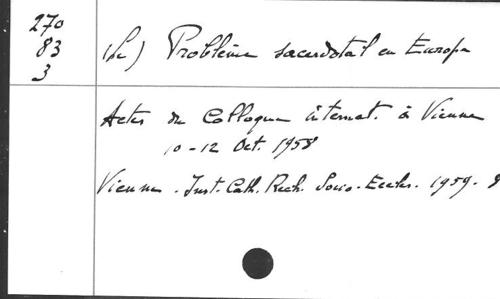 270
83
3
(Le) Problème sacerdotal en Europe
Actes du Colloque internat. à Vienne
10-12 Oct. 1958
Vienne. Inst. Cath. Rech. Socio-Eccles. 1959.